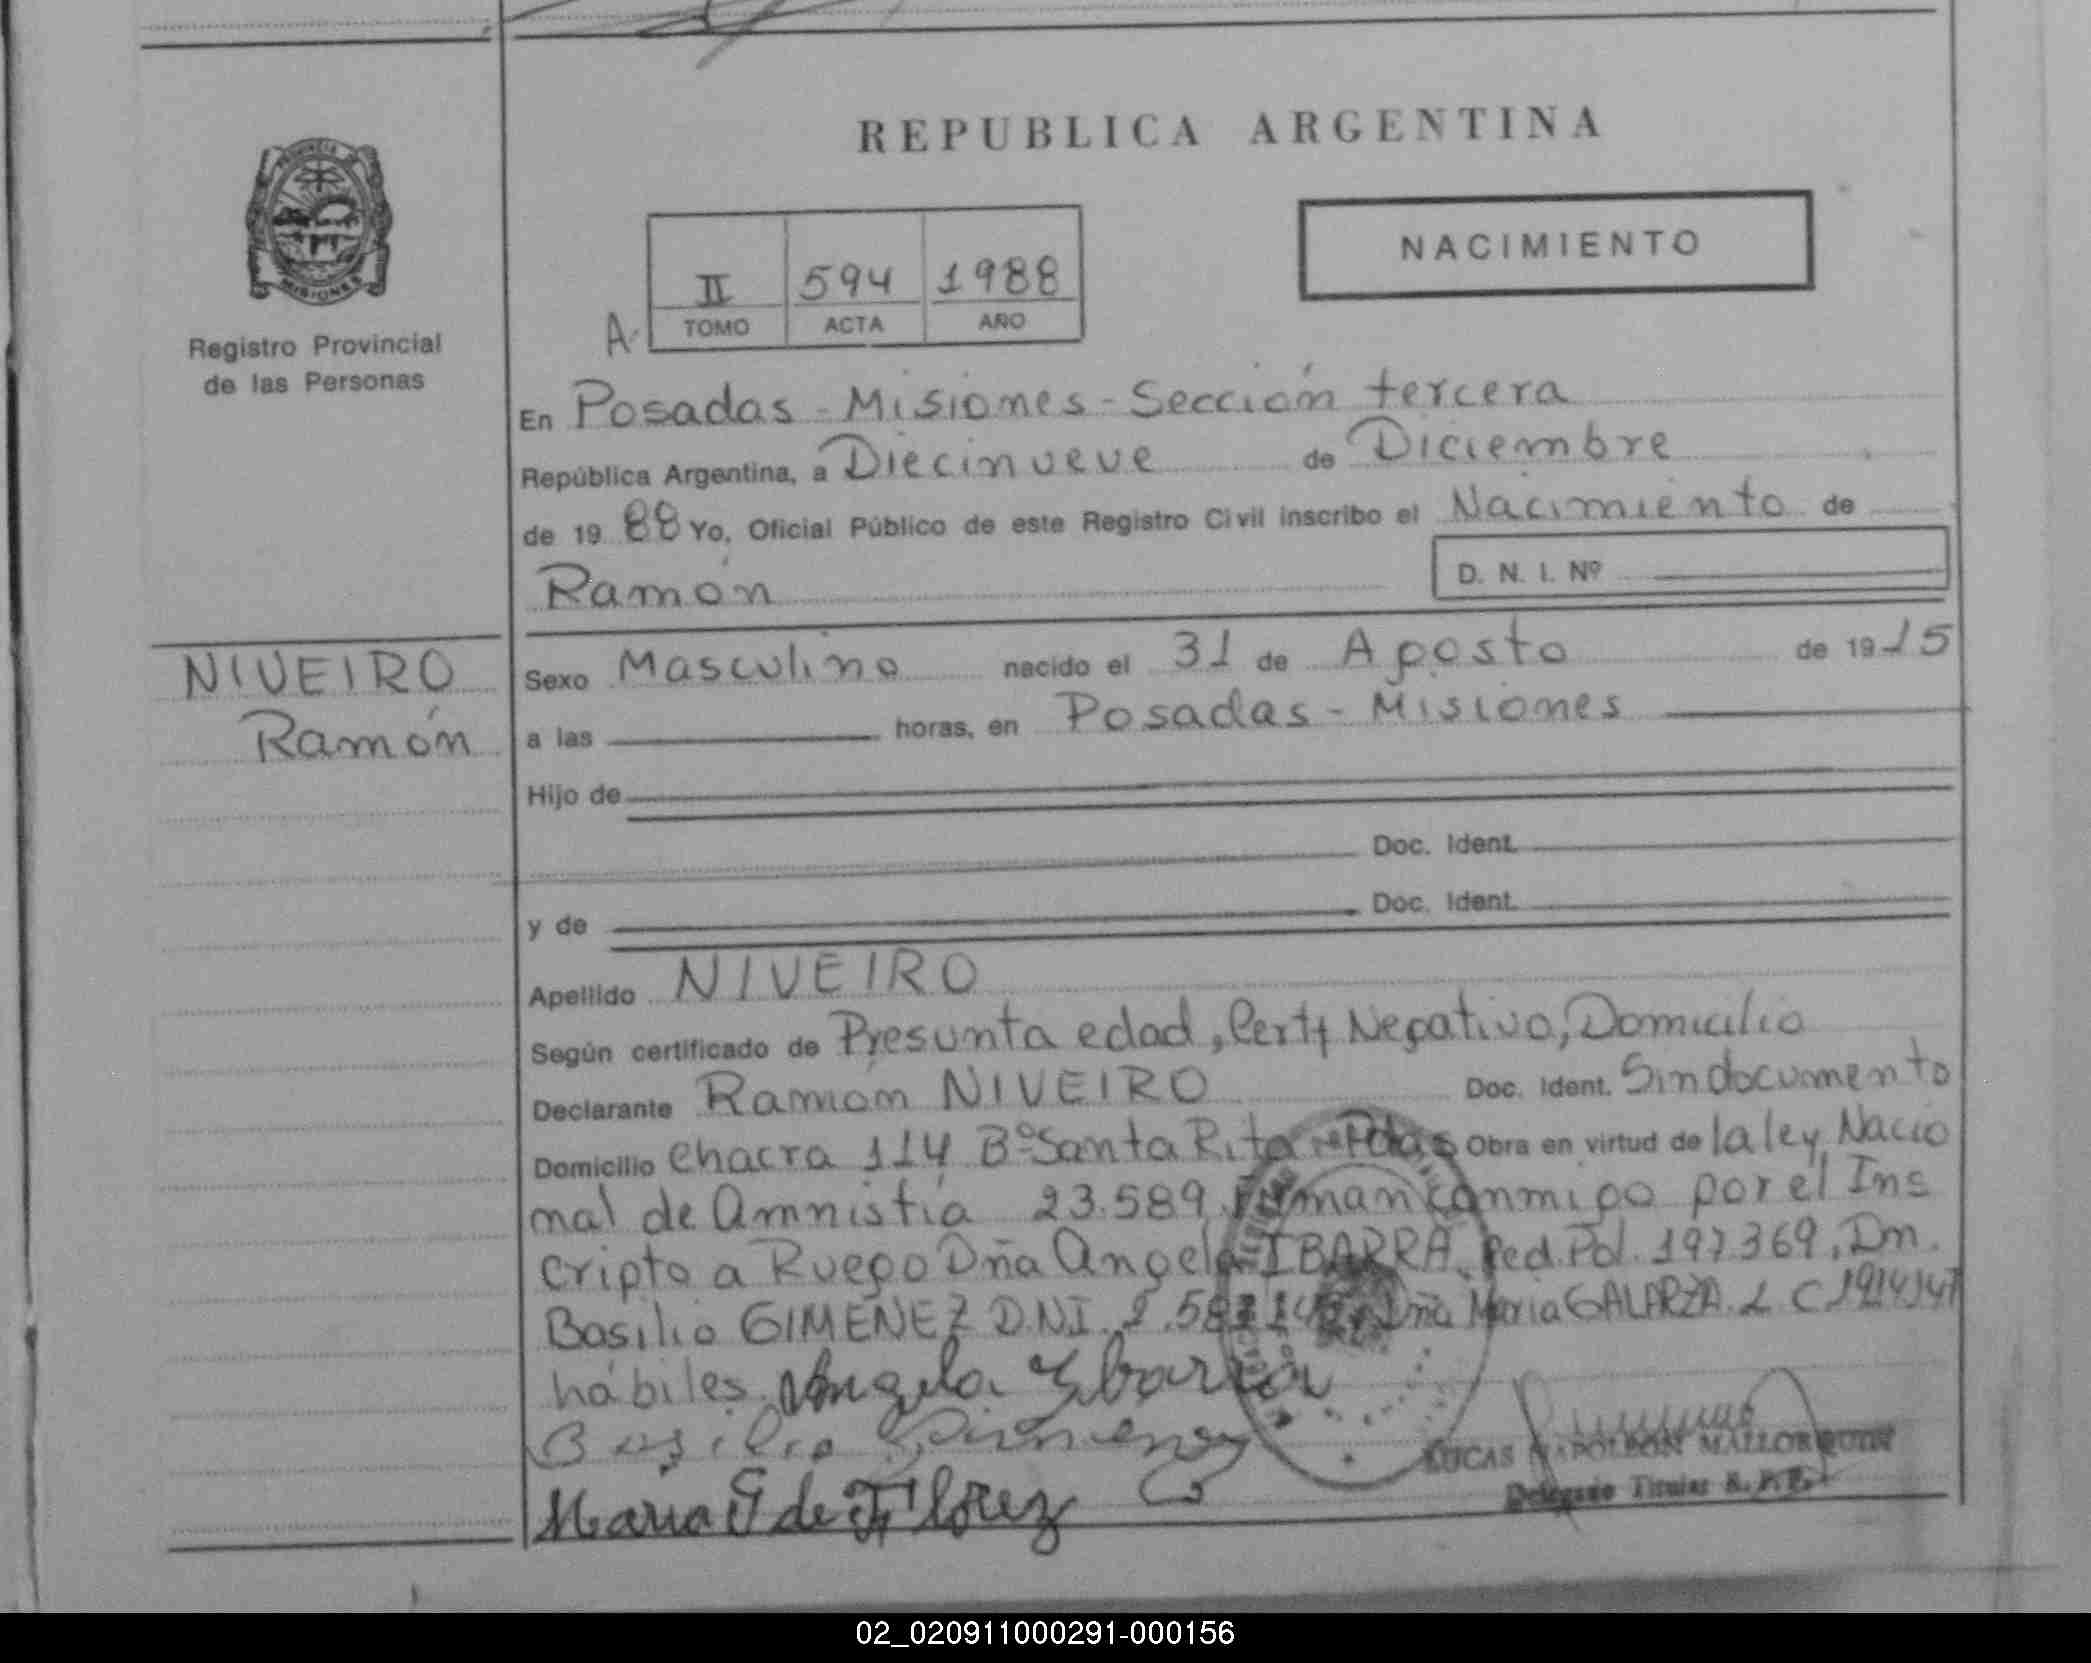 REPUBLICA ARGENTINA
PROVINCIA DE
MISIONES
Registro Provincial
de las Personas
NACIMIENTO
II 594 1988
A. TOMO ACTA AÑO
En Posadas - Misiones - Sección tercera
República Argentina, a Diecinueve de Diciembre
de 19 88 Yo, Oficial Público de este Registro Civil inscribo el Nacimiento de
Ramón
D. N. I. Nº
NIVEIRO
Ramón
Sexo Masculino nacido el 31 de Agosto de 19 15
a las horas, en Posadas - Misiones
Hijo de
Doc. Ident.
y de Doc. Ident.
Apellido NIVEIRO
Según certificado de Presunta edad, Certf Negativo, Domicilio
Declarante Ramón NIVEIRO Doc. Ident. Sin documento
Domicilio Chacra 114 Bº Santa Rita - Pdas Obra en virtud de la ley Nacio
nal de Amnistía 23.589 Firman conmigo por el Ins
cripto a Ruego Dña Angela IBARRA Ced. Pol. 197369, Dn.
Basilio GIMENEZ D.N.I. Dña Maria GALARZA L C
hábiles. Angela Ybarra
Basilio Gimenez
Maria G de Florez
LUCAS NAPOLEON MALLORQUIN
Delegado Titular R. P. P.
02_020911000291-000156